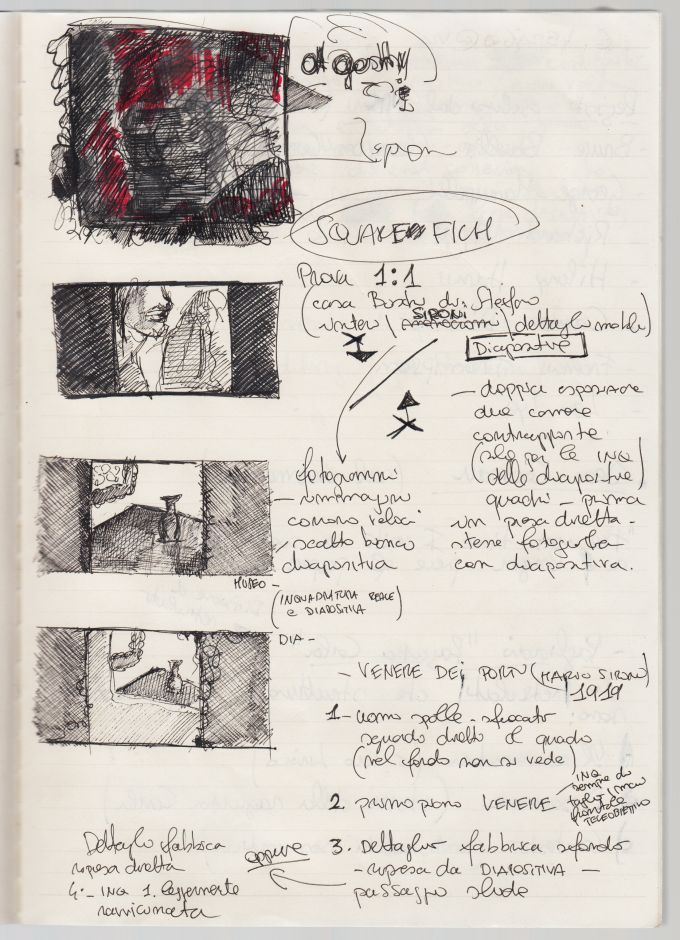 SQUARE FICH
Prova 1:1
(casa Boschi di Stefano
SIRONI
interni / / dettaglio mobili)
Diapositive
- doppia esposizione
due camere
contrapposte
(solo per le INQ
delle diapositive
quadri - prima
in presa diretta -
stessa fotografia
con diapositiva.
fotogrammi
- 
scatto bianco
diapositiva
MUSEO -
(INQUADRATURA REALE
E DIAPOSITIVA)
DIA -
- VENERE DEI PORTI (MARIO SIRONI)
1919
1 - uomo spalle - sfuocato
sguardo diretto il quadro
(nel fondo non si vede)
2. primo piano VENERE
INQ
sempre di
taglio / mai
frontale
TELEOBIETTIVO
3. Dettaglio fabbrica sfondo
- ripresa da DIAPOSITIVA -
passaggio slide
oppure
Dettaglio fabbrica
ripresa diretta
4: - INQ 1. leggermente
ravvicinata